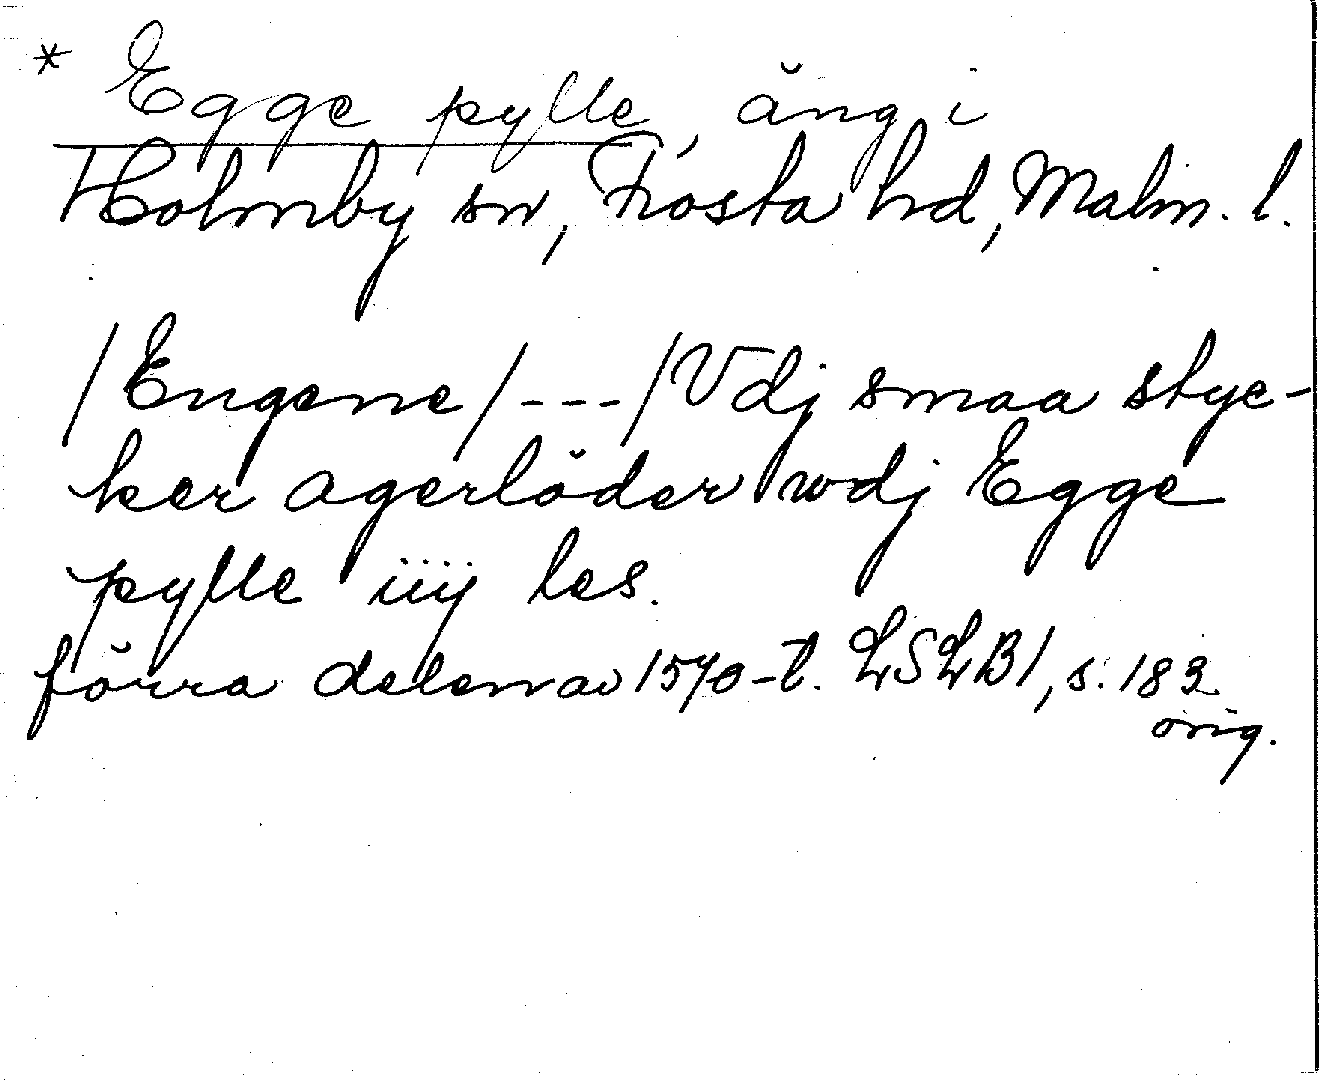 * Egge pylle, äng i
Holmby sn, Frosta hd, Malm. l.
/Engene/---/Vdj smaa styc-
ker agerlöder wdj Egge
pylle iiij les.
förra delen av 1570-t. LSLB1, s. 183
orig.